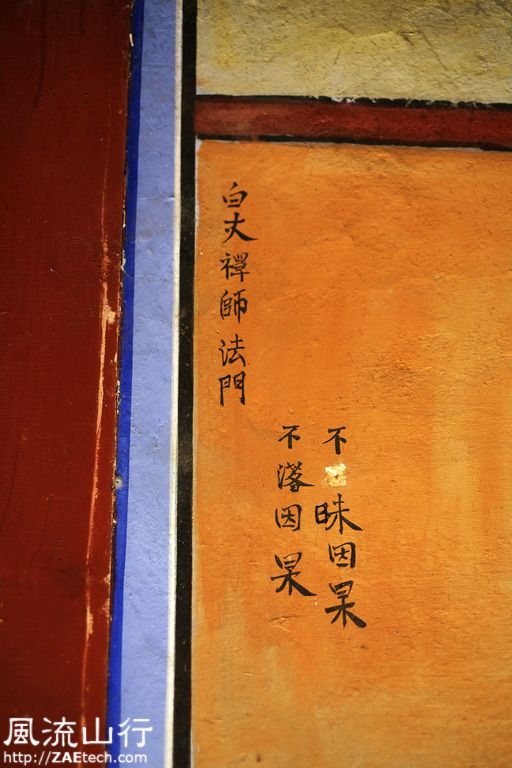 白丈禪師法門
不落因果
不昧因果
風流山行
http://ZAEtech.com